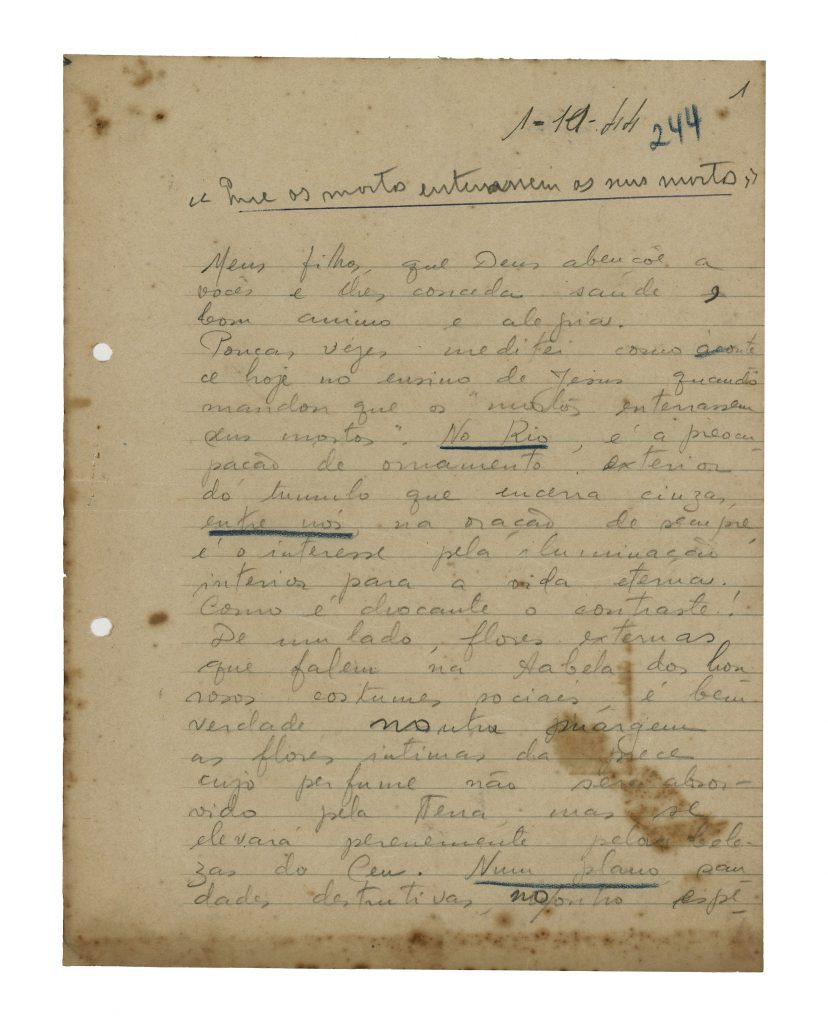 1
1-11-44 244
"Que os mortos enterrassem os seus mortos"
Meus filhos, que Deus abençôe a
vocês e lhes conceda saúde,
bom animo e alegria.
Poucas vêzes meditei como aconte
ce hoje no ensino de Jesus quando
mandou que os "mortos enterrassem
seus mortos". No Rio, é a preocu
pação de ornamento exterior
do tumulo que encerra cinzas,
entre nós, na oração de sempre,
é o interesse pela iluminação
interior para a vida eterna.
Como é chocante o contraste!
De um lado, flores externas
que falem na tabela dos hon
rosos costumes sociais é bem
verdade noutra márgem
as flores intimas da prece
cujo perfume não será absor-
vido pela Terra, mas se
elevará perenemente pelas bele-
zas do Ceu. Num plano, sau
dades destrutivas, no outro espe-